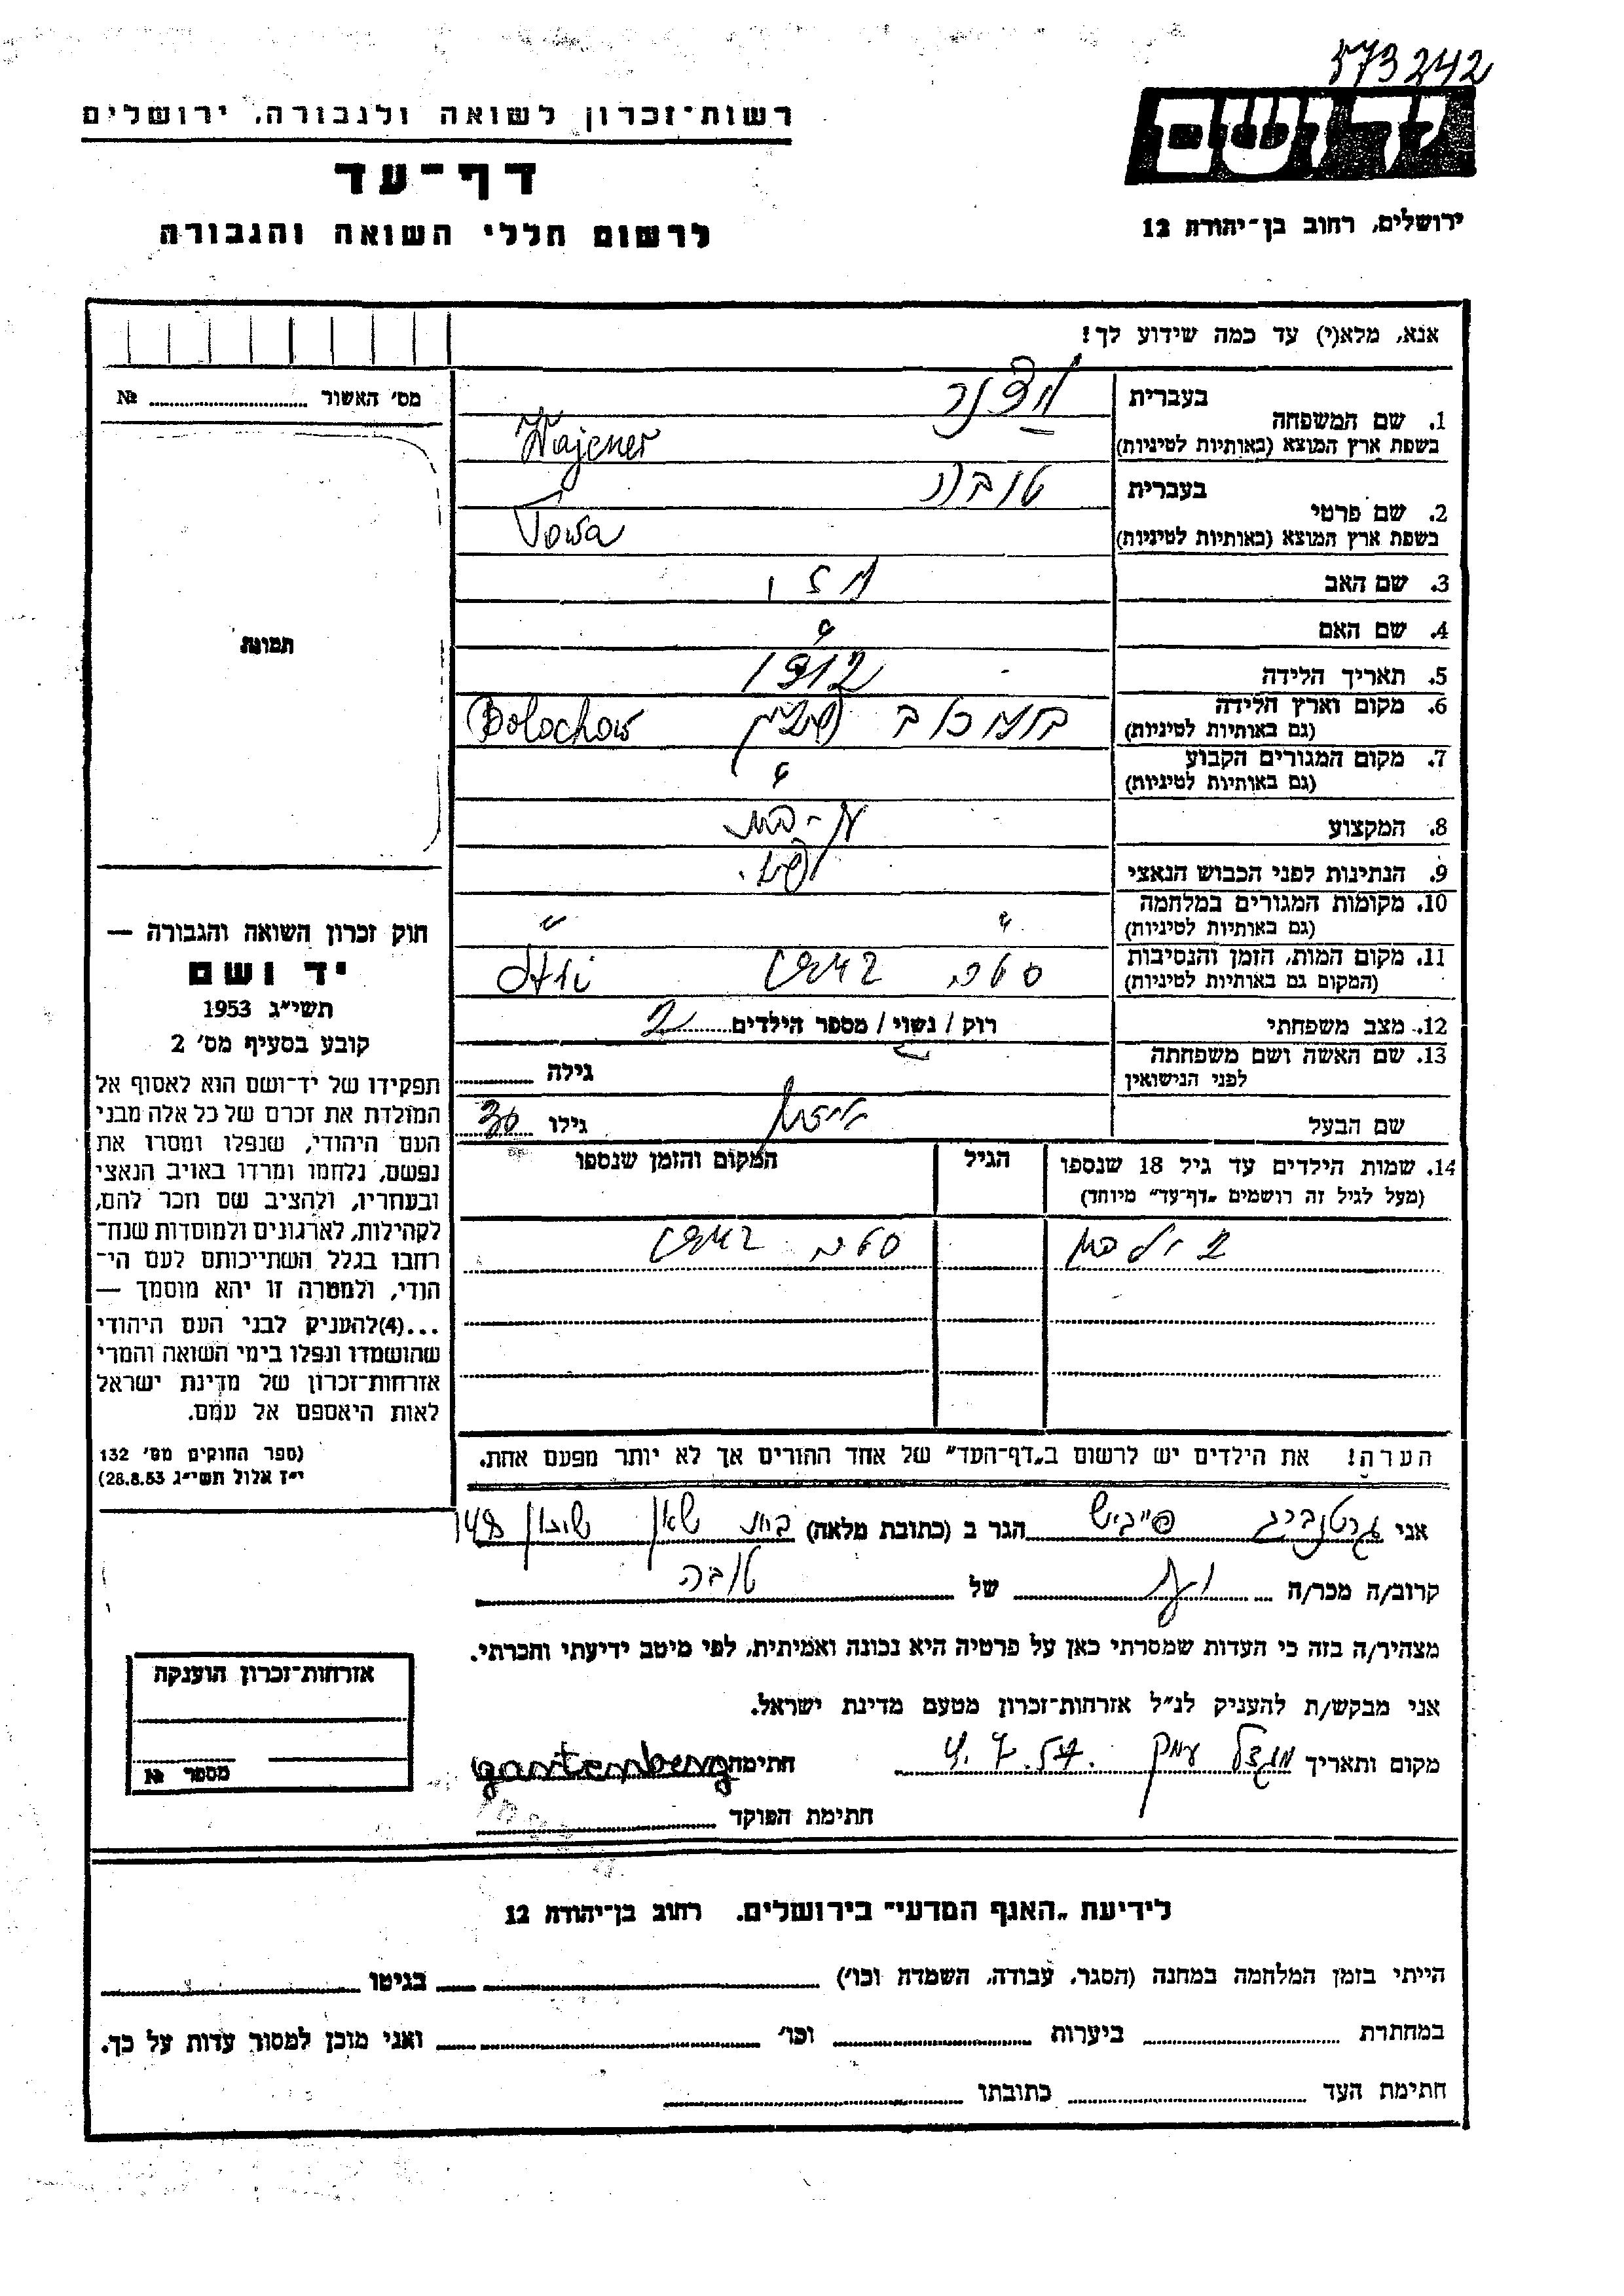 573242
יד ושם
ירושלים, רחוב בן־יהודה 12
רשות־זכרון לשואה ולגבורה, ירושלים
דף־עד
לרשום חללי השואה והגבורה
אנא, מלא(י) עד כמה שידוע לך!
מס׳ האשור №
1. שם המשפחה
בעברית
בשפת ארץ המוצא (באותיות לטיניות) Wajener
2. שם פרטי
בעברית
בשפת ארץ המוצא (באותיות לטיניות) Towa
3. שם האב
4. שם האם
5. תאריך הלידה 1912
6. מקום וארץ הלידה Bolochow
(גם באותיות לטיניות)
7. מקום המגורים הקבוע
(גם באותיות לטיניות)
8. המקצוע
9. הנתינות לפני הכבוש הנאצי
10. מקומות המגורים במלחמה " "
(גם באותיות לטיניות)
11. מקום המות, הזמן והנסיבות
(המקום גם באותיות לטיניות)
12. מצב משפחתי רוק / נשוי / מספר הילדים 2
13. שם האשה ושם משפחתה
לפני הנישואין גילה
שם הבעל גילו 36
14. שמות הילדים עד גיל 18 שנספו הגיל המקום והזמן שנספו
(מעל לגיל זה רושמים „דף־עד” מיוחד)
הערה! את הילדים יש לרשום ב„דף־העד” של אחד ההורים אך לא יותר מפעם אחת.
תמונה
חוק זכרון השואה והגבורה —
יד ושם
תשי״ג 1953
קובע בסעיף מס׳ 2
תפקידו של יד־ושם הוא לאסוף אל
המולדת את זכרם של כל אלה מבני
העם היהודי, שנפלו ומסרו את
נפשם, נלחמו ומרדו באויב הנאצי
ובעוזריו, ולהציב שם וזכר להם,
לקהילות, לארגונים ולמוסדות שנח־
רבו בגלל השתייכותם לעם הי־
הודי, ולמטרה זו יהא מוסמך —
...(4)להעניק לבני העם היהודי
שהושמדו ונפלו בימי השואה והמרי
אזרחות־זכרון של מדינת ישראל
לאות היאספם אל עמם.
(ספר החוקים מס׳ 132
י״ז אלול תשי״ג 28.8.53)
אני גרטנברג פייביש הגר ב (כתובת מלאה) בית שאן שיכון
קרוב/ה מכר/ה של טובה
מצהיר/ה בזה כי העדות שמסרתי כאן על פרטיה היא נכונה ואמיתית, לפי מיטב ידיעתי והכרתי.
אני מבקש/ת להעניק לנ״ל אזרחות־זכרון מטעם מדינת ישראל.
מקום ותאריך מגדל עמק חתימה gartenberg
חתימת הפוקד
אזרחות־זכרון הוענקה
מספר №
לידיעת „האגף המדעי” בירושלים. רחוב בן־יהודה 12
הייתי בזמן המלחמה במחנה (הסגר, עבודה, השמדה וכו׳) בגיטו
במחתרת ביערות וכו׳ ואני מוכן למסור עדות על כך.
חתימת העד כתובתו